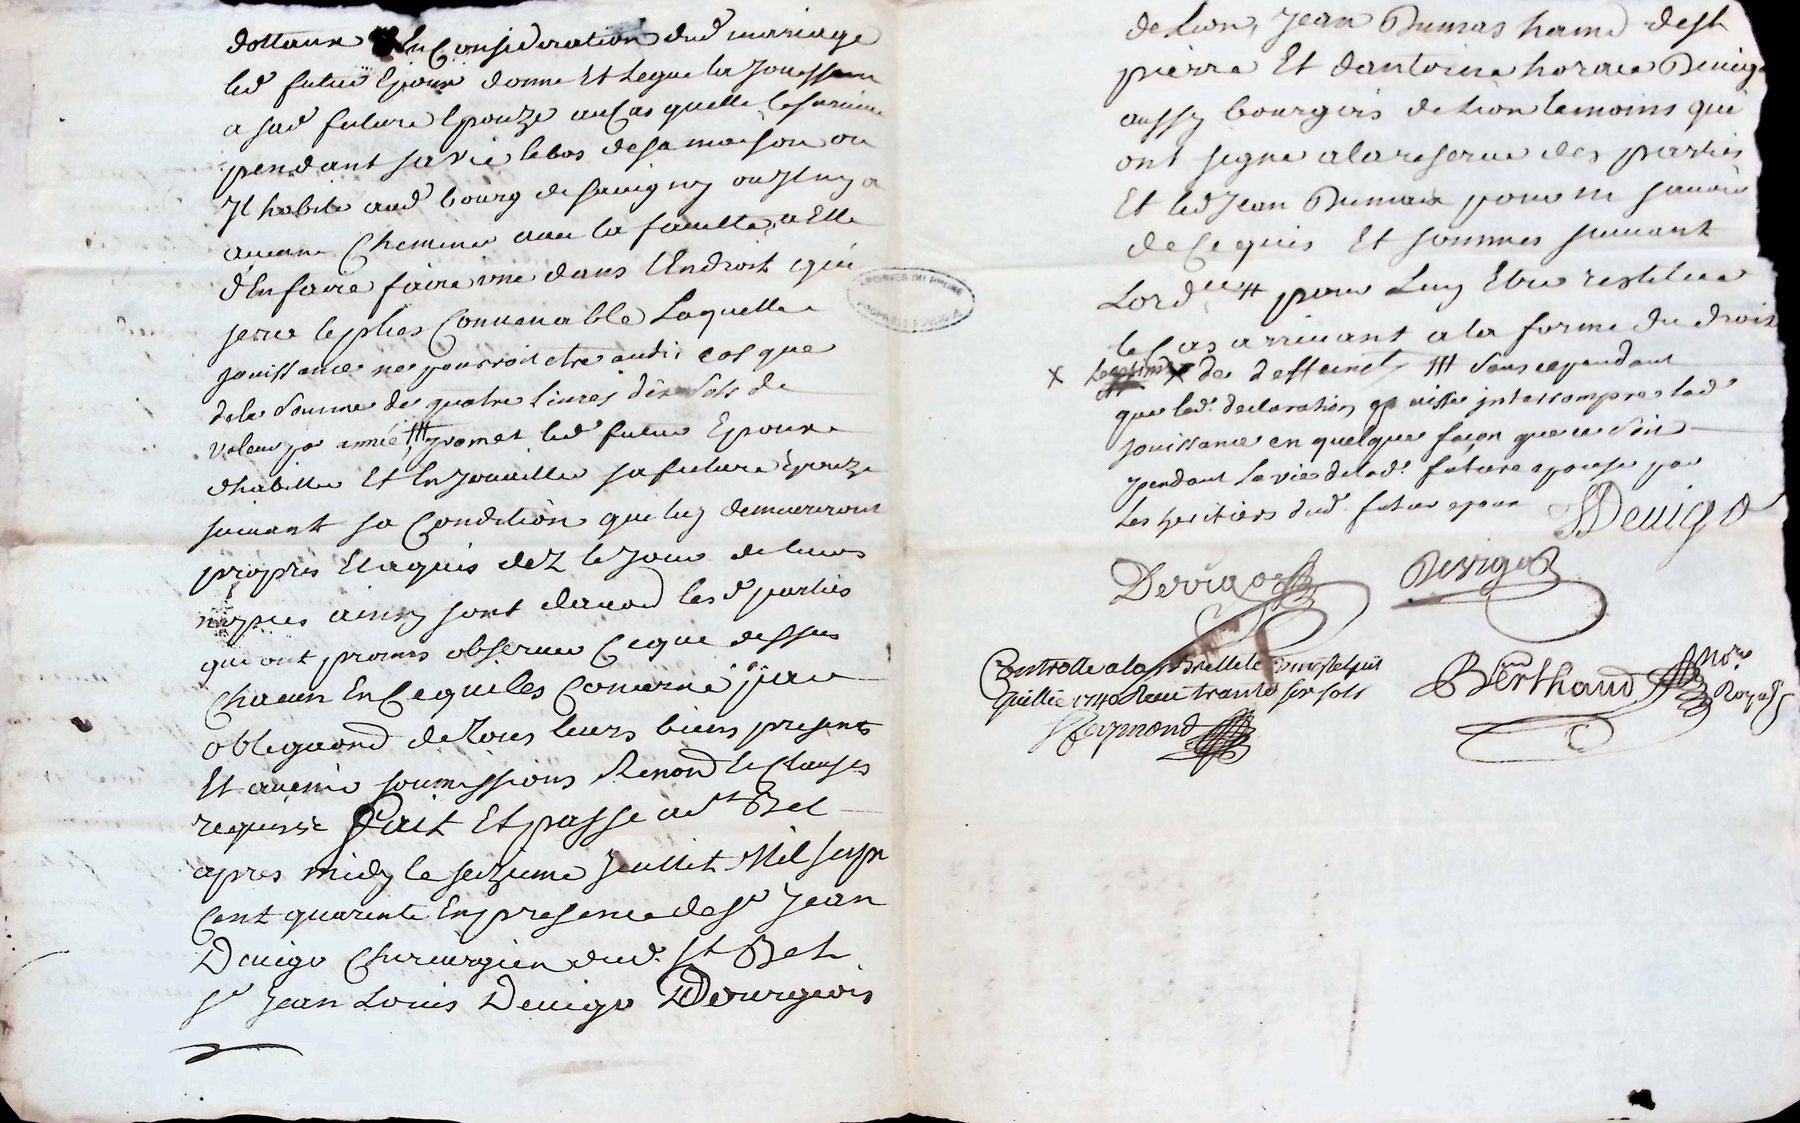 dottaux En Consideration dud mariage
led futur Epoux donne Et Legue la Jouissance
a sad future Epouze au Cas quelle le survive
pendant sa vie le bas de sa maison ou
Jl habite aud bourg de savigny ou Jl ny a
aucune Cheminee avec la faculte a Elle
d'En faire faire une dans l'Endroit qui
sera le plus Convenable Laquelle
jouissance ne pourroit etre audit cas que
de la somme de quatre livres dix sols de
valeur par année, ttt promet led futur Epoux
d'habiller Et En Jouailler sa future Epouze
suivant sa Condition que luy demeureront
propres Et aquis dez le Jour de leurs
nopces ainsy sont dacord lesd parties
qui ont promis observer Ce que dessus
Chacun En Ce qui les Concerne par
obligaond de tous leurs biens presents
Et avenir soumissions Renond Et Clauses
requise Fait Et passe a St Bel
apres midy le seizieme Jeullet Mil sept
Cent quarente En presence de Sr Jean
Devigo Chirurgien dud. St Bel
Sr Jean Louis Devigo Bourgeois
de Lion, Jean Dumas
pierre Et dantoine horace Devigo
aussy bourgeois de Lion temoins qui
ont signe a la reserve des parties
Et led Jean Dumas pour ne savoir
de Ce quis Et sommes suivant
Lord ce tt pour Luy Etre restituee
le Cas arrivant a la forme du droit
x x de deffunct ttt sans cependant
que lad. declaration puisse interrompre lad
jouissance en quelque façon que ce soit
pendant la vie de lad. future epouse par
Les heritiers dud. futur epoux Devigo
Devigo Devigo
Controlle a la Brelle le
Juillet 1740 Recu trante six sols
Berthaud Nore Royal
Reymond
ARCHIVES DU RHONE